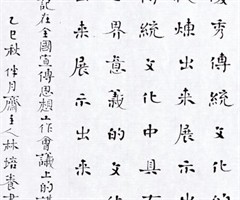 秀傳統文化中具
煉出来展示出
傳統文化中具有
界意義的文化
出来展示出来
記在全國宣傳思想工作會議上的講
乙巳秋 伴月齋主人林培養書